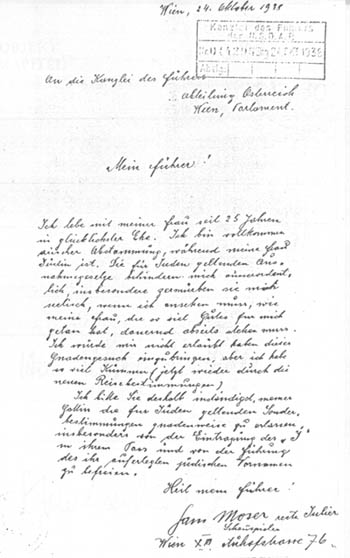 Wien, 24. Oktober 1938
Kanzlei des Führers
der N.S.D.A.P.
An die Kanzlei des Führers
Abteilung Österreich
Wien, Parlament.
Mein Führer!
Ich lebe mit meiner Frau seit 25 Jahren
in glücklichster Ehe. Ich bin vollkommen
arischer Abstammung, während meine Frau
Jüdin ist. Die für Juden geltenden Aus-
nahmegesetze behindern mich ausserordent-
lich, insbesondere zermürben sie mich
seelisch, wenn ich ansehen muss, wie
meine Frau, die so viel Gutes für mich
getan hat, dauernd abseits stehen muss.
Ich würde mir nicht erlaubt haben dieses
Gnadengesuch einzubringen, aber ich habe
so viel Kummer (jetzt wieder durch die
neuen Reisebestimmungen)
Ich bitte Sie deshalb inständigst, meiner
Gattin die für Juden geltenden Sonder-
bestimmungen gnadenweise zu erlassen,
insbesonders von der Eintragung des „J"
in ihrem Pass und von der Führung
des ihr auferlegten jüdischen Vornamens
zu befreien.
Heil mein Führer!
Hans Moser recte Julier
Schauspieler
Wien XIII